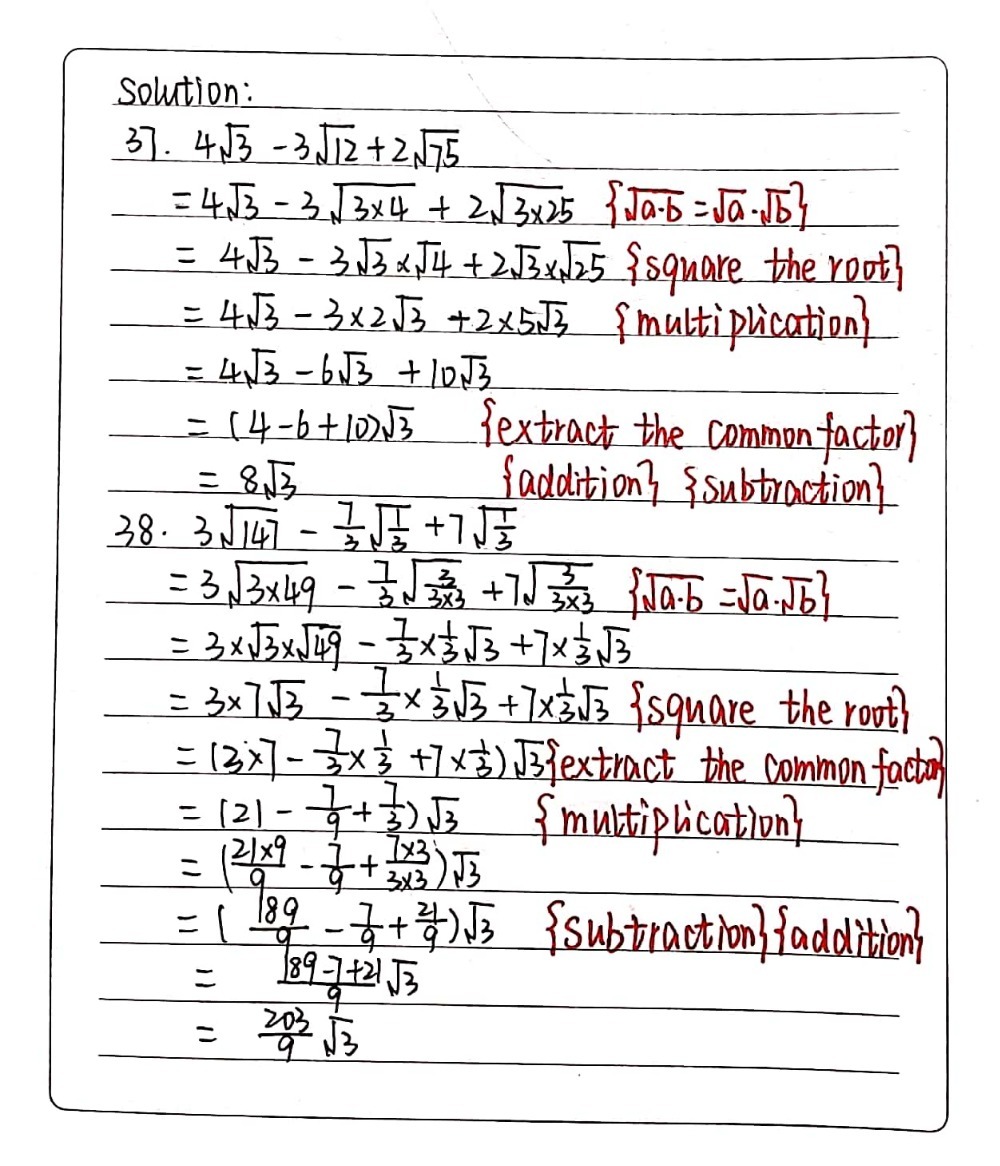 Solution:
37. 4√3 - 3√12 + 2√75
= 4√3 - 3√(3×4) + 2√(3×25) {√(a·b) = √a·√b}
= 4√3 - 3√3×√4 + 2√3×√25 {square the root}
= 4√3 - 3×2√3 + 2×5√3 {multiplication}
= 4√3 - 6√3 + 10√3
= (4-6+10)√3 {extract the common factor}
= 8√3 {addition} {subtraction}
38. 3√147 - 7/3√(1/3) + 7√(1/3)
= 3√(3×49) - 7/3√(3/(3×3)) + 7√(3/(3×3)) {√(a·b) = √a·√b}
= 3×√3×√49 - 7/3×1/3√3 + 7×1/3√3
= 3×7√3 - 7/3×1/3√3 + 7×1/3√3 {square the root}
= (3×7 - 7/3×1/3 + 7×1/3)√3 {extract the common factor}
= (21 - 7/9 + 7/3)√3 {multiplication}
= ((21×9)/9 - 7/9 + (7×3)/(3×3))√3
= (189/9 - 7/9 + 21/9)√3 {subtraction} {addition}
= (189-7+21)/9 √3
= 203/9 √3